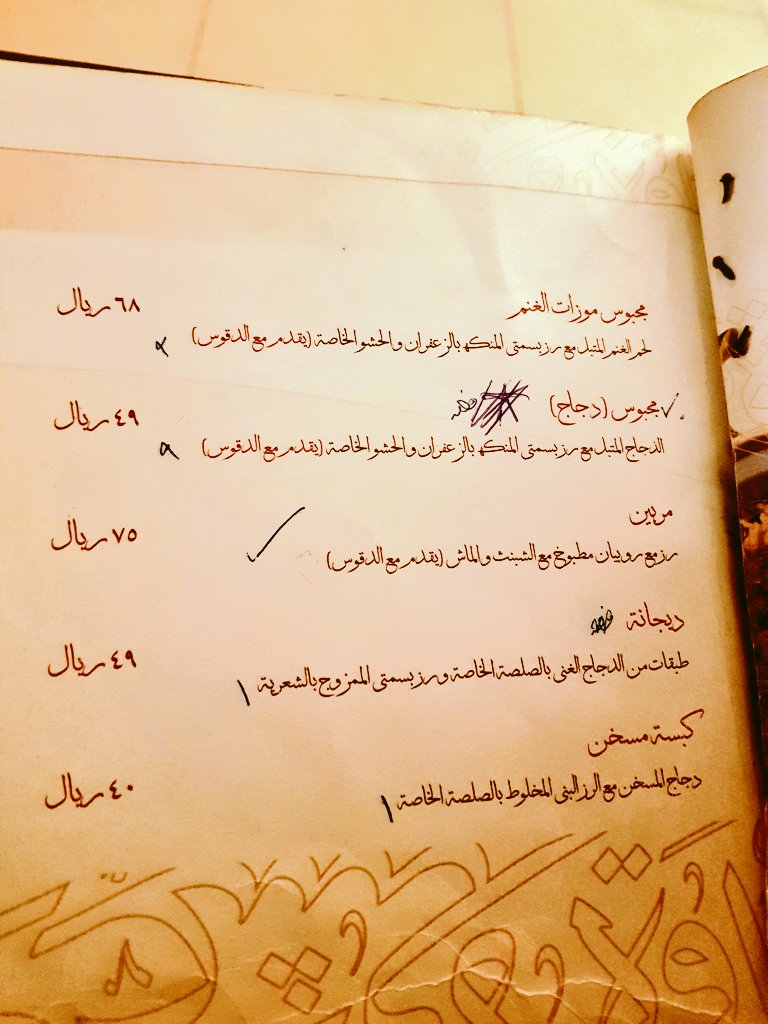 مجبوس موزات الغنم ٦٨ ريال
لحم الغنم المتبل مع رز بسمتى المنكه بالزعفران والحشو الخاصة (يقدم مع الدقوس)
مجبوس (دجاج) ٤٩ ريال
الدجاج المتبل مع رز بسمتى المنكه بالزعفران والحشو الخاصة (يقدم مع الدقوس) ٩
مربين ٧٥ ريال
رز مع روبيان مطبوخ مع الشبنث والماش (يقدم مع الدقوس)
ديجانة ٤٩ ريال
طبقات من الدجاج الغنى بالصلصة الخاصة ورز بسمتى الممزوج بالشعرية ١
كبسة مسخن ٤٠ ريال
دجاج المسخن مع الرز البنى المخلوط بالصلصة الخاصة ١